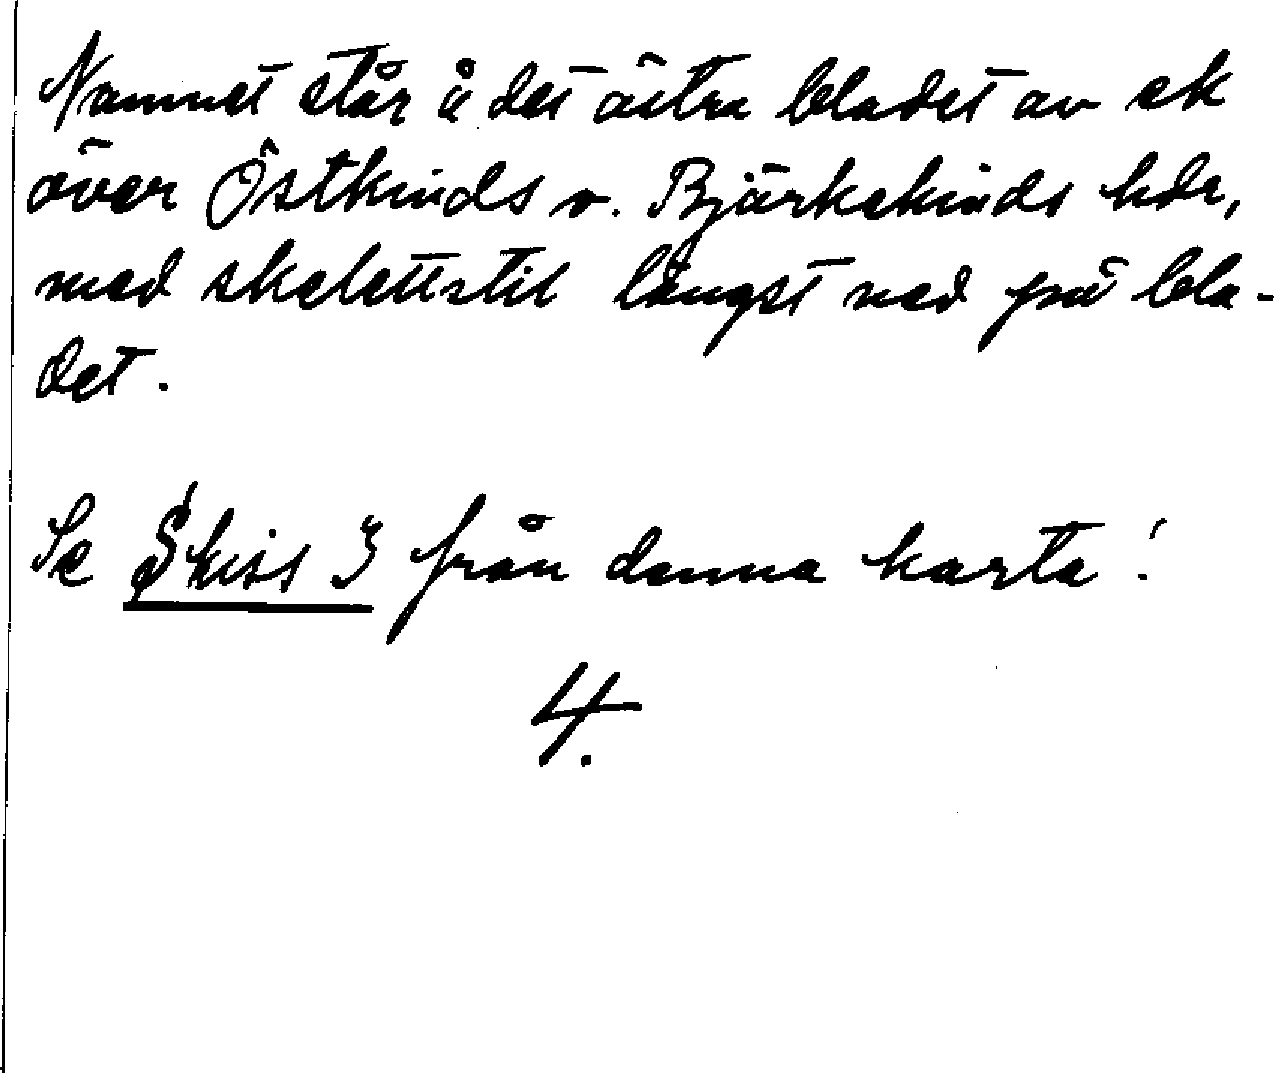 Namnet står å det östra bladet av ek
över Östkinds o. Björkekinds hdr,
med skelettstil längst ned på bla-
det.
Se Skiss 3 från denna karta!
4.